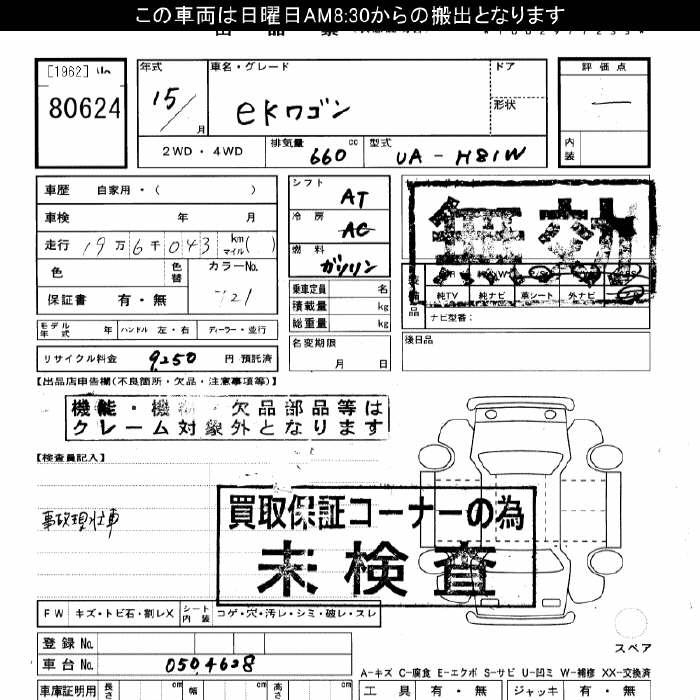 この車両は日曜日AM8:30からの搬出となります
[1962]
80624
年式
15
月
車名・グレード
eKワゴン
ドア
形状
評価点
内装
2WD・4WD
排気量
660
cc
型式
UA-H81W
車歴 自家用・( )
車検 年 月
走行 19万6千043 km マイル( )
色
色替
カラーNo.
721
保証書 有・無
モデル年式 年
ハンドル 左・右
ディーラー・並行
リサイクル料金 9,250 円 預託済
シフト
AT
冷房
AC
燃料
ガソリン
乗車定員 名
積載量 kg
総重量 kg
名変期限
月 日
純TV 純ナビ 革シート 外ナビ
ナビ型番:
後日品
【出品店申告欄(不良箇所・欠品・注意事項等)】
機能・機 ・欠品部品等は
クレーム対象外となります
【検査員記入】
事故現状車
買取保証コーナーの為
未検査
FW キズ・トビ石・割レX
シート内装 コゲ・穴・汚レ・シミ・破レ・スレ
登録No.
車台No. 0504628
スペア
A-キズ C-腐食 E-エクボ S-サビ U-凹ミ W-補修 XX-交換済
車庫証明用 長さ cm 幅 cm 高さ cm
工具 有・無
ジャッキ 有・無